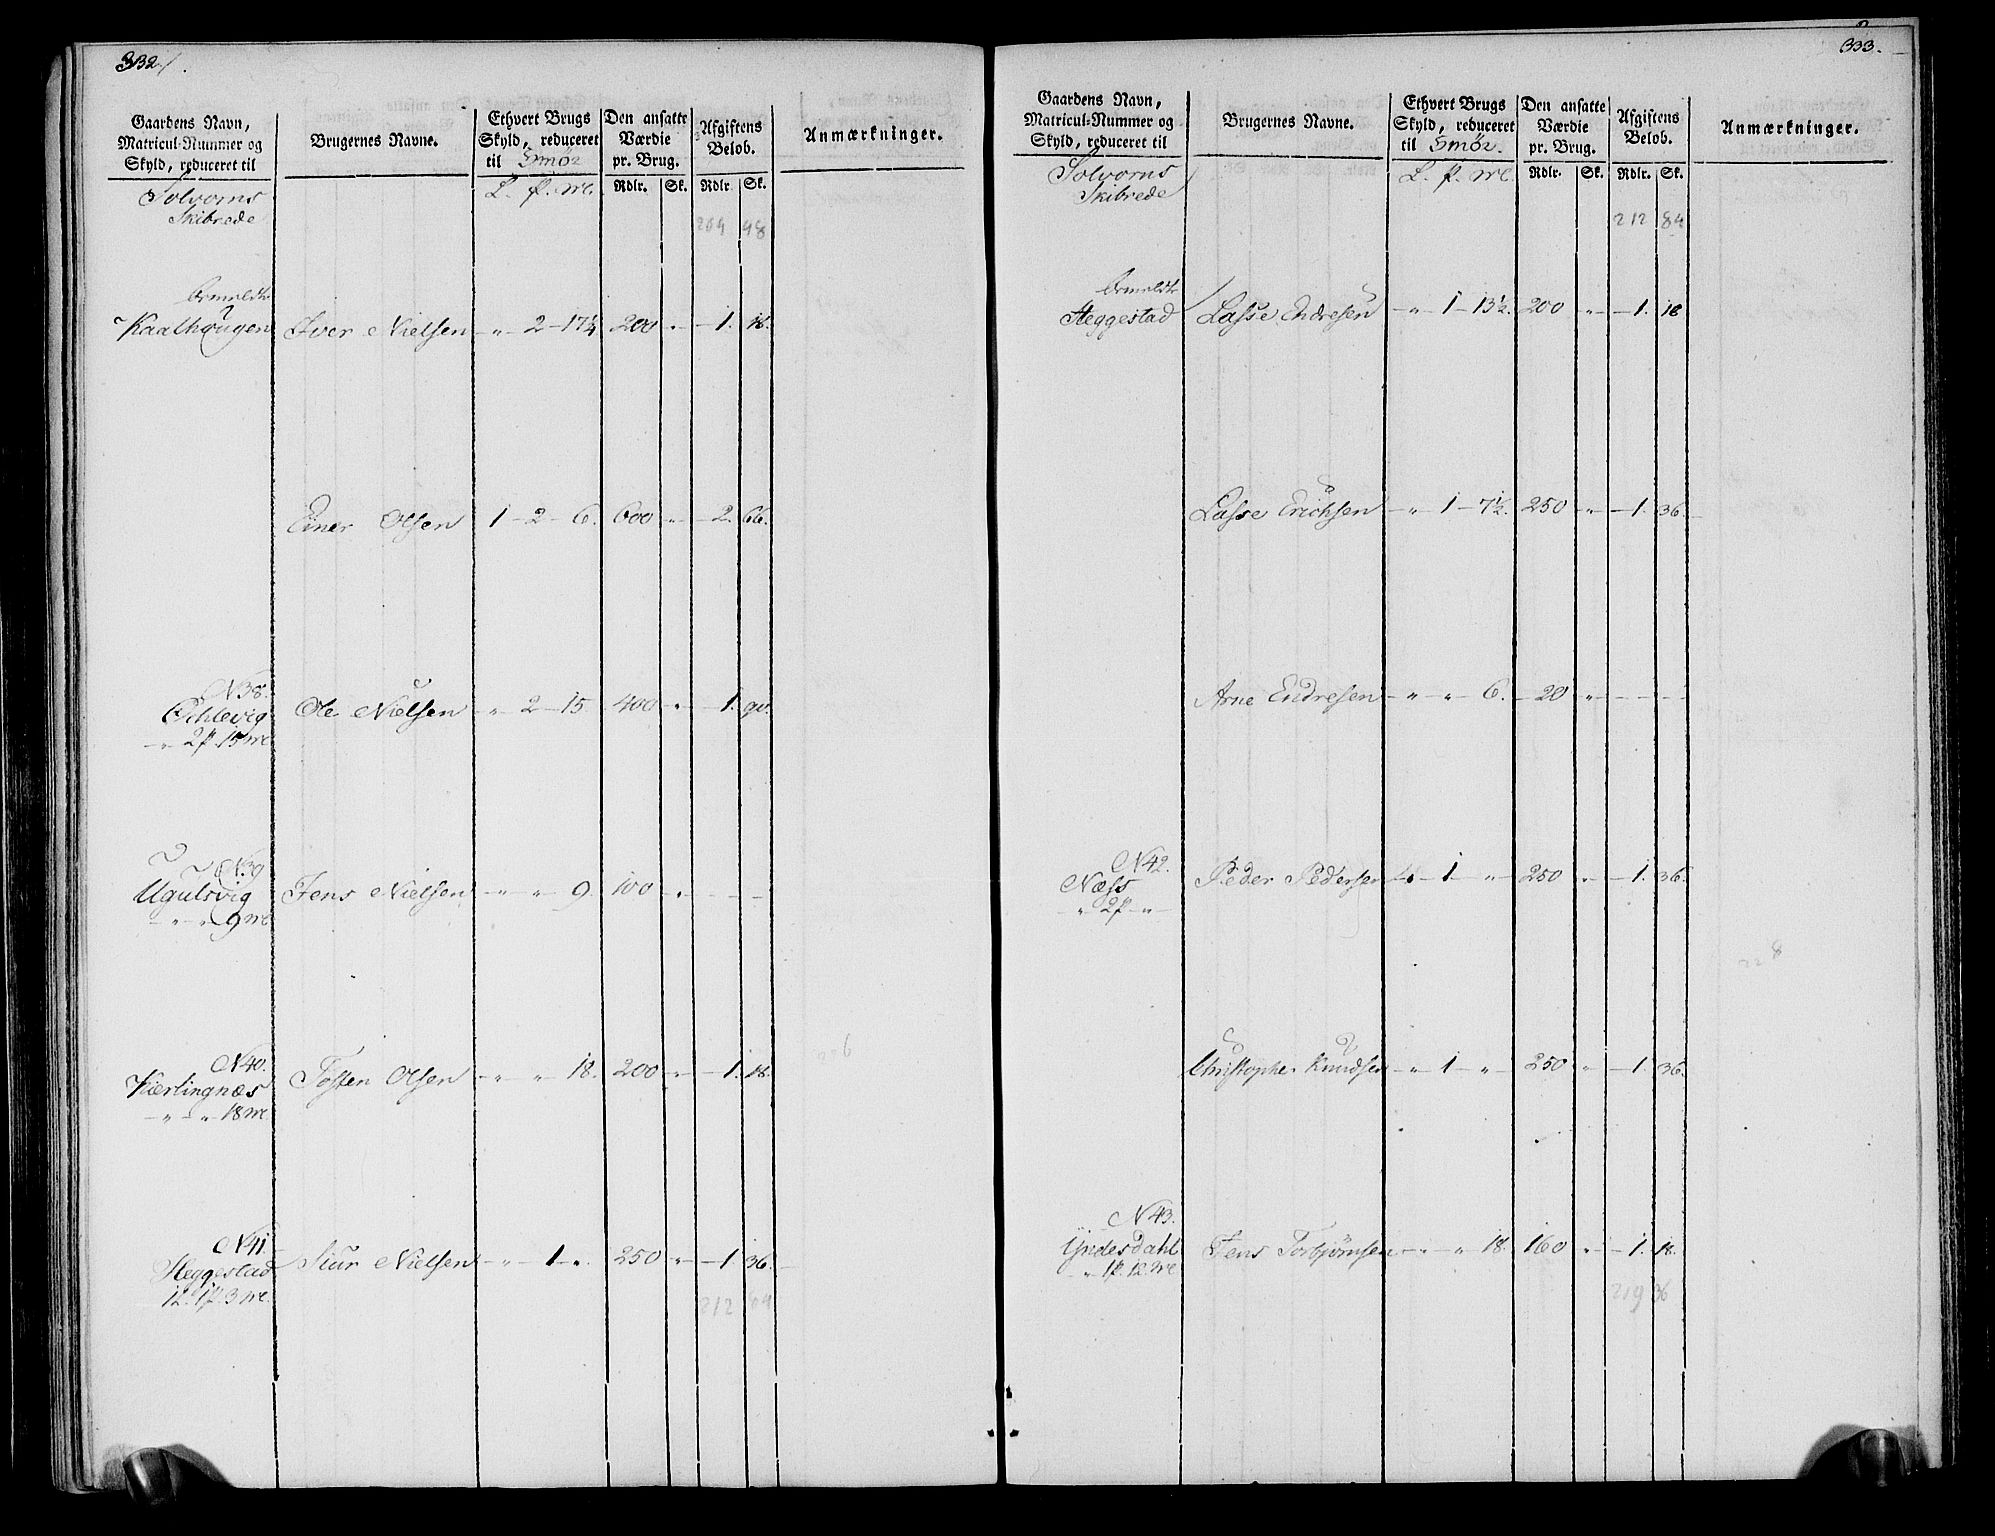 332
Gaardens Navn, Matricul-Nummer og Skyld, reduceret til
Brugernes Navne.
Ethvert Brugs Skyld, reduceret til Smör
Den ansatte Værdie pr. Brug.
Afgiftens Beløb.
Anmærkninger.
L. p. mc. Rdlr. Sk. Rdlr. Sk.
Solvorns
Skibrede
204 48
Kaalhougen Iver Nielsen - " 2 - 17¼ 200 " - 1. 18.
Einer Olsen 1 - 2 - 6. 600 " - 2. 66.
N38.
Ole Nielsen " 2 - 15. 400 " - 1. 90.
- " 2p 15 mc
N39
Ugulsvig Jens Nielsen - " " 9. 100 " - - -
- " - " 9 mc
N40.
Kærlingnæs Tosten Olsen - " " 18. 200 " - 1. 18.
- " - " 18 mc
N41.
Heggestad Siur Nielsen - " 1 - ". 250 " - 1. 36.
1L. 1p. 3 mc.
212
333.
Gaardens Navn, Matricul-Nummer og Skyld, reduceret til
Brugernes Navne.
Ethvert Brugs Skyld, reduceret til Smör.
Den ansatte Værdie pr. Brug.
Afgiftens Beløb.
Anmærkninger.
L. p. mc Rdlr. Sk. Rdlr. Sk.
Solvorns
Skibrede
212 84
Heggestad Lasse Endresen - " 1 - 13½. 200 " - 1. 18
Lasse Erichsen - " 1 - 7½. 250 " - 1. 36.
Arne Endresen - " " 6. - 20 " - - -
N42.
Næss Peder Pedersen 1 - " - 250 " - 1. 36.
" 2p - "
Christopher Knudsen - " 1 - " - 250 " - 1. 36.
N43.
Yndesdahl Jens Torbjørnsen - " " 18. 160 " - 1. 18.
- " 1p. 12. mc
219 36